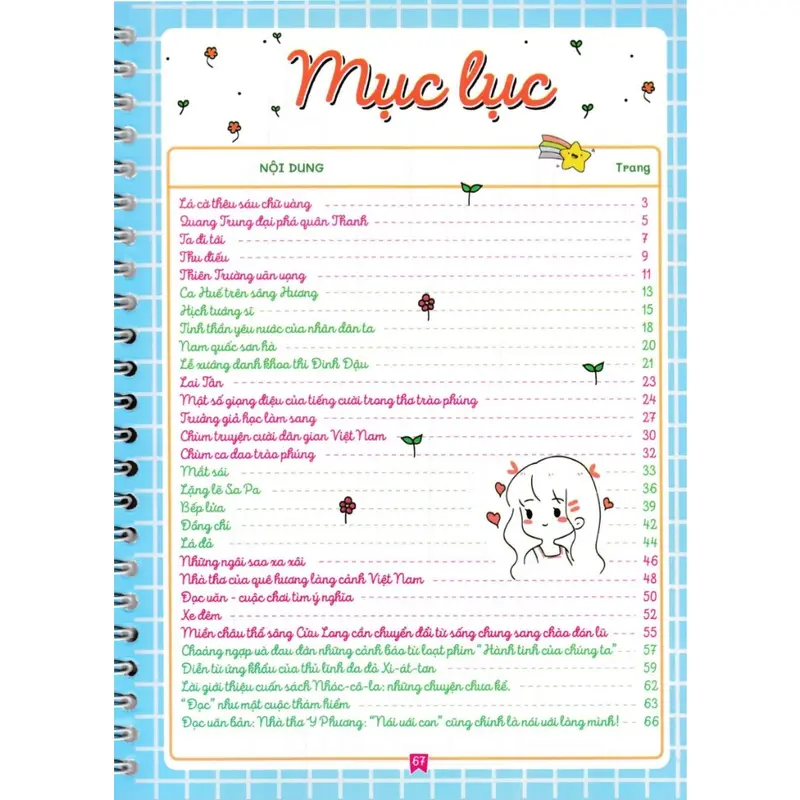 Mục lục
NỘI DUNG Trang
Lá cờ thêu sáu chữ vàng 3
Quang Trung đại phá quân Thanh 5
Ta đi tới 7
Thu điếu 9
Thiên Trường vãn vọng 11
Ca Huế trên sông Hương 13
Hịch tướng sĩ 15
Tinh thần yêu nước của nhân dân ta 18
Nam quốc sơn hà 20
Lễ xướng danh khoa thi Đinh Dậu 21
Lai Tân 23
Một số giọng điệu của tiếng cười trong thơ trào phúng 24
Trưởng giả học làm sang 27
Chùm truyện cười dân gian Việt Nam 30
Chùm ca dao trào phúng 32
Mắt sói 33
Lặng lẽ Sa Pa 36
Bếp lửa 39
Đồng chí 42
Lá đỏ 44
Những ngôi sao xa xôi 46
Nhà thơ của quê hương làng cảnh Việt Nam 48
Đọc văn - cuộc chơi tìm ý nghĩa 50
Xe đêm 52
Miền châu thổ sông Cửu Long cần chuyển đổi từ sống chung sang chào đón lũ 55
Choáng ngợp và đau đớn những cảnh báo từ loạt phim “Hành tinh của chúng ta” 57
Diễn từ ứng khẩu của thủ lĩnh da đỏ Xi-át-tơn 59
Lời giới thiệu cuốn sách Nhóc-cô-la: những chuyện chưa kể. 62
“Đọc” như một cuộc thám hiểm 63
Đọc văn bản: Nhà thơ Y Phương: “Nói với con” cũng chính là nói với lòng mình! 66
67